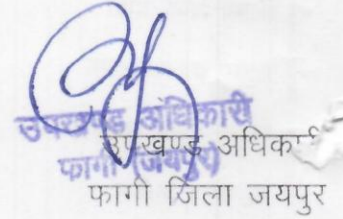 उपखण्ड अधिकारी
फागी (जयपुर)
उपखण्ड अधिका
फागी जिला जयपुर